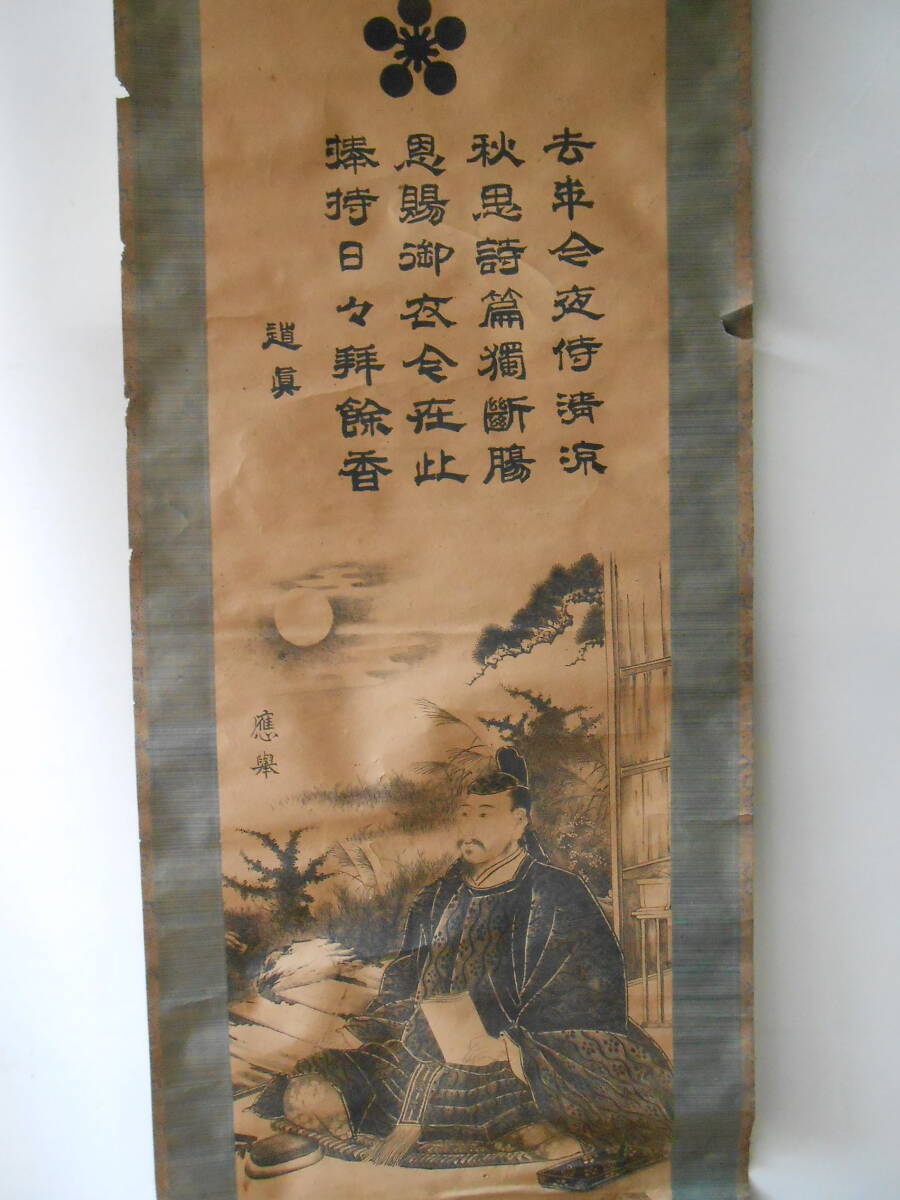 去年今夜侍清涼
秋思詩篇獨斷腸
恩賜御衣今在此
捧持日々拜餘香
道眞
應舉